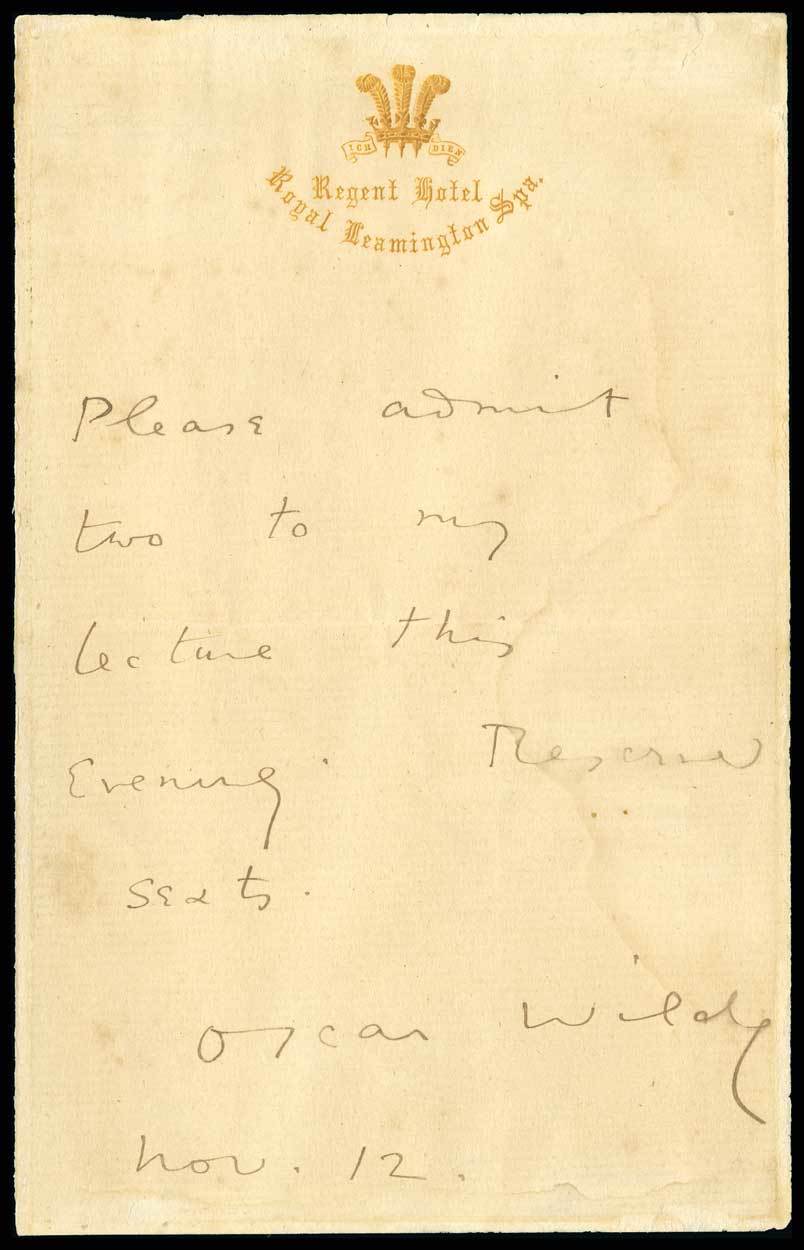 ICH DIEN
Regent Hotel
Royal Leamington Spa.
Please admit
two to my
lecture this
Evening. Reserved
seats.
Oscar Wilde
Nov. 12.